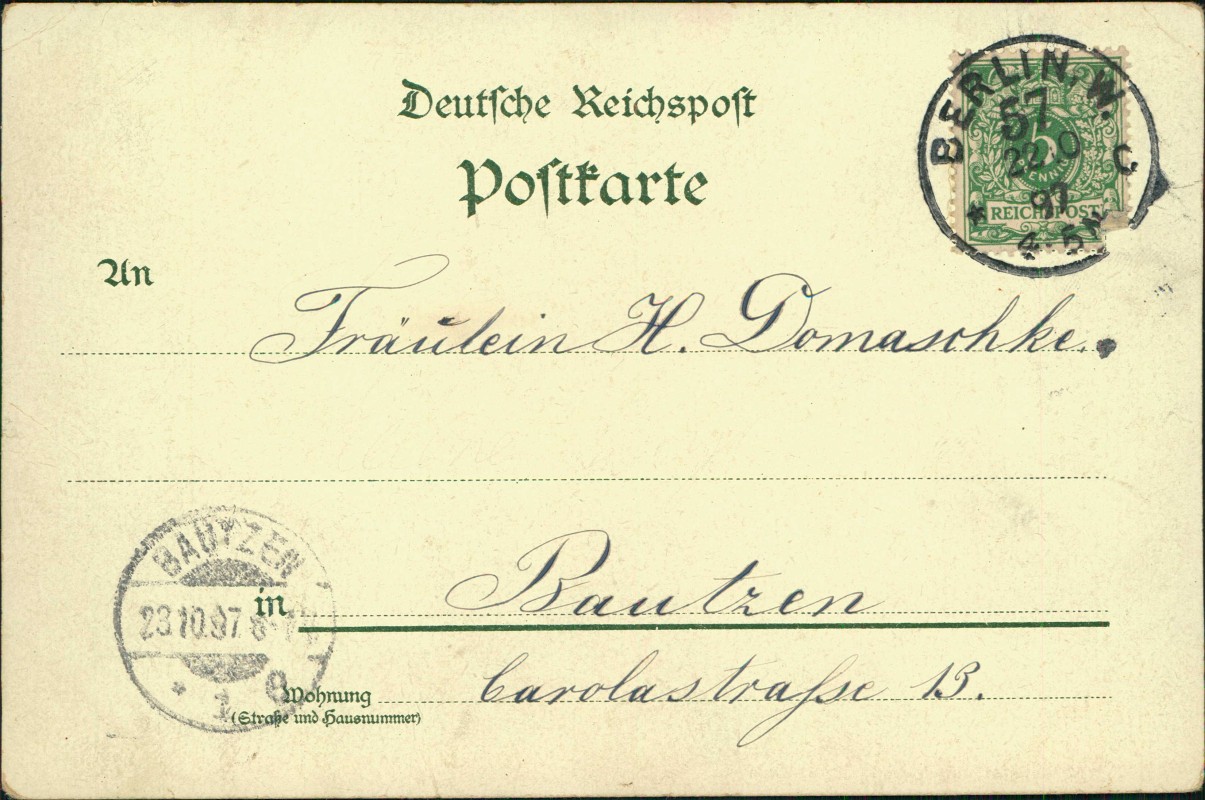 Deutsche Reichspost
Postkarte
BERLIN, W.
57
22.10
97
4-5N
C
5
PFENNIG
REICHSPOST
An
Fräulein H. Domaschke.
in Bautzen
BAUTZEN
23.10.97
1
Wohnung Carolastraße 13.
(Straße und Hausnummer)